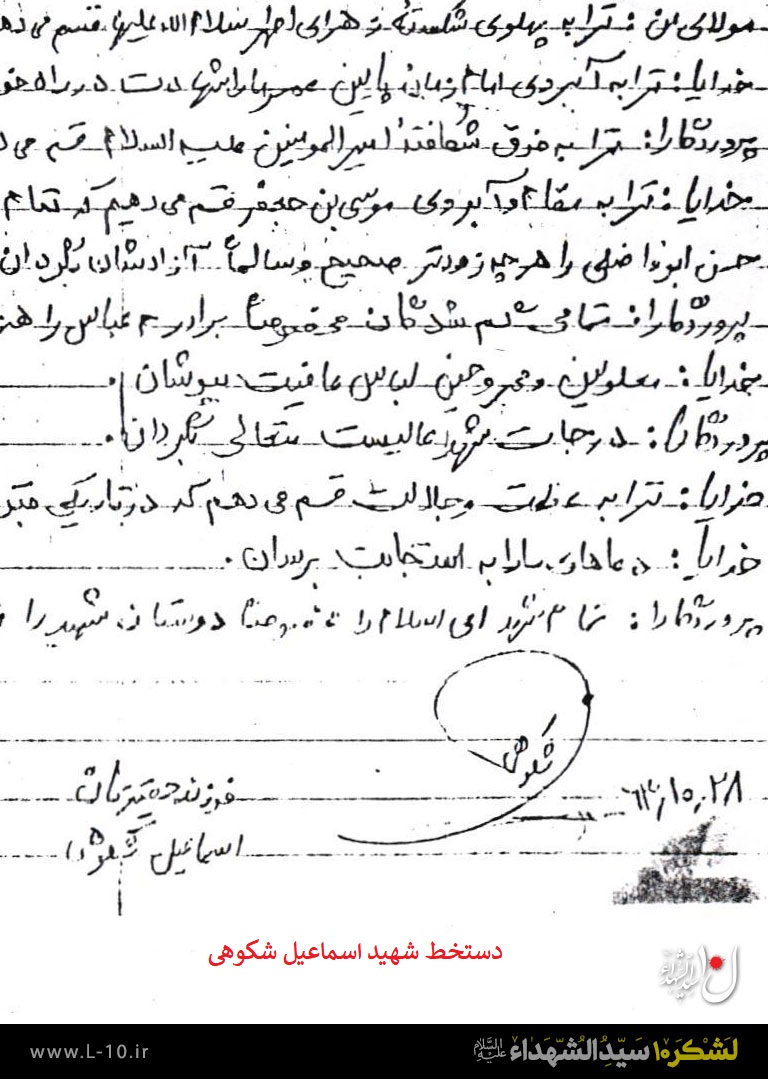 مولای من : ترا به پهلوی شکسته زهرای اطهر سلام الله علیها قسم می ده
خدایا : ترا به آبروی امام زمان پایین عمر ما را شهادت در راه خو
پروردگارا : ترا به فرق شکافتهٔ امیرالمومنین علیه السلام قسم می د
خدایا : ترا به مقام و آبروی موسی بن جعفر قسم می دهیم که تمام
حسن ابوفاضلی را هر چه زودتر صحیح و سالماً آزادشان بگردان
پروردگارا : تمامی گم شدگان مخصوصاً برادرم عباس را هر
خدایا : معلولین و مجروحین لباس عافیت بپوشان .
پروردگارا : درجات شهدا عالیست متعالی بگردان .
خدایا : ترا به عظمت و جلالت قسم می دهم که در تاریکی قبر
خدایا : دعاهای ما را به استجابت برسان .
پروردگارا : تمام شهدای اسلام را مخصوصاً دوستان شهید را
شکوهی
۶۳،۱۰،۲۸
اسماعیل شکوهی
دستخط شهید اسماعیل شکوهی
لشکر۱۰ سیدالشهداء علیه السلام
www.L-10.ir